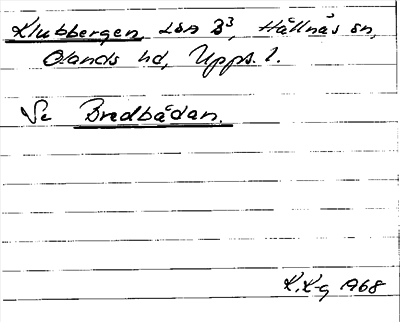 Klubbergen, LSA B³, Hållnäs sn,
Olands hd, Upps. l.
Se Bredbådan.
K.K-g 1968